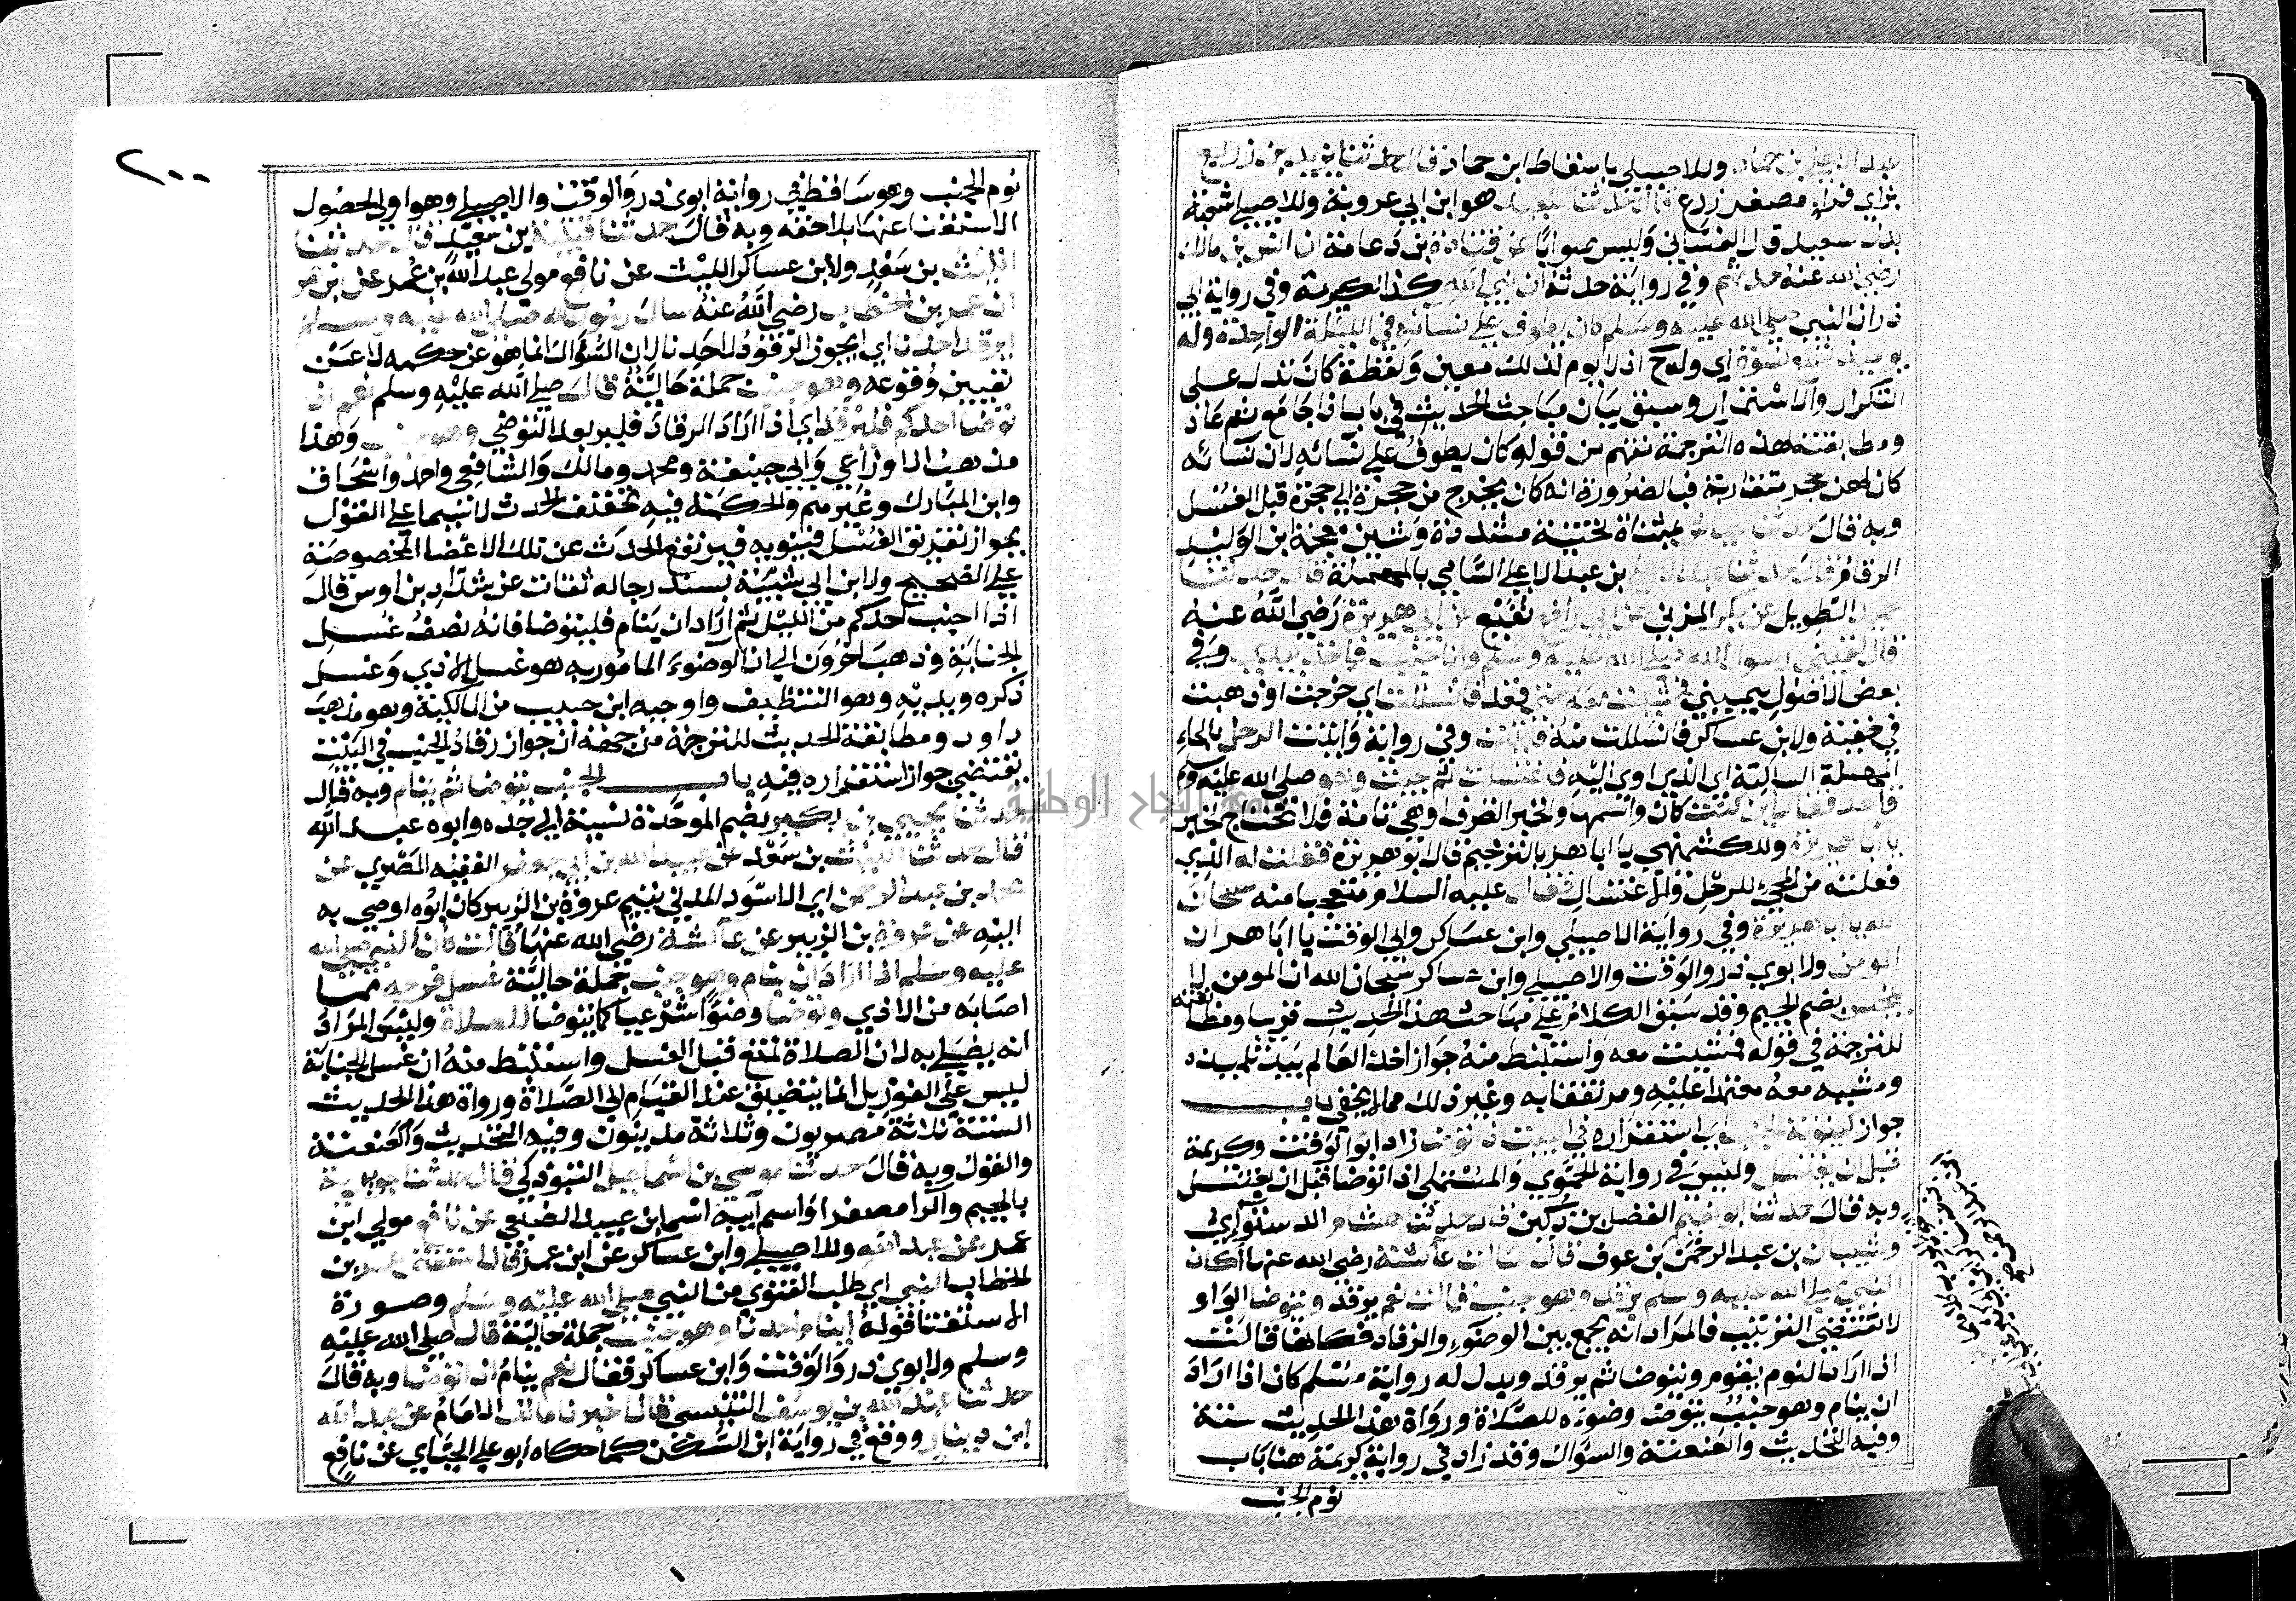 عبد الاعلى بن حماد وللاصيلي باسقاط ابن حماد قال حدثنا يزيد بن زريع
بزاي فراء مصغر زرع قال حدثنا سعيد هو ابن ابي عروبة وللاصيلي شعبة
بدل سعيد قال الغساني وليس صوابا عن قتادة بن دعامة ان انس بن مالك
رضي الله عنه حدثهم وفي رواية حدثه ان نبي الله كذا لكريمة وفي رواية ابي
ذر ان النبي صلى الله عليه وسلم كان يطوف على نسائه في الليلة الواحدة وله
يوميذ تسع نسوة اي وله ح اذ لا يوم لذلك معين ولفظة كان تدل على
التكرار والاستمرار وسبق بيان مباحث الحديث في باب اذا جامع ثم عاد
ومطابقته لهذه الترجمة تفهم من قوله كان يطوف على نسائه لان نسائه
كان لهن حجر متقاربة فبالضرورة انه كان يخرج من حجرة الى حجرة قبل الغسل
وبه قال حدثنا عياش بمثناة تحتية مشددة وشين معجمة ابن الوليد
الرقام قال حدثنا عبد الاعلى بن عبد الاعلى السامي بالمهملة قال حدثنا
حميد الطويل عن بكر المزني عن ابي رافع نفيع عن ابي هريرة رضي الله عنه
قال لقيني رسول الله صلى الله عليه وسلم وانا جنب فاخذ بيدي وفي
بعض الاصول بيميني فمشيت معه حتى قعد فانسللت اي خرجت او ذهبت
في خفية ولابن عساكر فانسللت منه فاتيت وفي رواية واتيت الرحل بالحاء
المهملة الساكنة اي الذي اوي اليه فاغتسلت ثم جيت وهو صلى الله عليه وسلم
قاعد فقال اين كنت كان واسمها والخبر الظرف او هي تامة فلا تحتاج لخبر
يا ابا هريرة وللكشميهني يا ابا هر بالترخيم قال ابو هريرة فقلت له الذي
فعلته من المجيء للرحل والاغتسال فقال عليه السلام متعجبا منه سبحان
الله يا ابا هريرة وفي رواية الاصيلي وابن عساكر وابي الوقت يا ابا هر ان
المومن ولابوي ذر والوقت والاصيلي وابن عساكر سبحان الله ان المومن لا
ينجس بضم الجيم وقد سبق الكلام على مباحث هذا الحديث قريبا ومطابقته
للترجمة في قوله فمشيت معه واستنبط منه جواز اخذ العالم بيد تلميذه
ومشيه معه معتمدا عليه ومرتفقا به وغير ذلك مما لا يخفى باب
جواز كينونة الجنب اي استقراره في البيت اذا توضا زاد ابو الوقت وكريمة
قبل ان يغتسل وليس في رواية الحموي والمستملي اذا توضا قبل ان يغتسل
وبه قال حدثنا ابو نعيم الفضل بن دكين قال حدثنا هشام الدستوائي
وشيبان بن عبد الرحمن بن عوف قال سالت عائشة رضي الله عنها اكان
النبي صلى الله عليه وسلم يرقد وهو جنب قالت نعم يرقد ويتوضا الواو
لا تقتضي الترتيب فالمراد انه يجمع بين الوضوء والرقاد فكانها قالت
اذا اراد النوم يقوم ويتوضا ثم يرقد ويدل له رواية مسلم كان اذا اراد
ان ينام وهو جنب يتوضا وضوءه للصلاة ورواة هذا الحديث ستة
وفيه التحديث والعنعنة والسؤال وقد زاد في رواية كريمة هنا باب
نوم الجنب
٢٠٠
نوم الجنب وهو ساقط في رواية ابوي ذر والوقت والاصيلي وهو اولى لحصول
الاستغنا عنها بلاحقه وبه قال حدثنا قتيبة بن سعيد قال حدثنا
الليث بن سعد ولابن عساكر الليث عن نافع مولى عبد الله بن عمر عن ابن عمر
ان عمر بن الخطاب رضي الله عنه سال رسول الله صلى الله عليه وسلم
ايرقد احدنا اي ايجوز الرقود لاحدنا لان السؤال انما هو عن حكمه لا عن
تعيين وقوعه وهو جنب جملة حالية قال صلى الله عليه وسلم نعم اذا
توضا احدكم فليرقد اي اذا اراد الرقاد فليرقد بعد التوضي وهو جنب وهذا
مذهب الاوزاعي وابي حنيفة ومحمد ومالك والشافعي واحمد واسحاق
وابن المبارك وغيرهم والحكمة فيه تخفيف الحدث لا سيما على القول
بجواز تفريق الغسل فينويه فيرتفع الحدث عن تلك الاعضا المخصوصة
على الصحيح ولابن ابي شيبة بسند رجاله ثقات عن شداد بن اوس قال
اذا اجنب احدكم من الليل ثم اراد ان ينام فليتوضا فانه نصف غسل
الجنابة وذهب اخرون الى ان الوضوء المامور به هو غسل الاذي وغسل
ذكره ويديه وهو التنظيف واوجبه ابن حبيب من المالكية وهو مذهب
داود ومطابقة الحديث للترجمة من جهة ان جواز رقاد الجنب في البيت
يقتضي جواز استقراره فيه باب الجنب يتوضا ثم ينام وبه قال
حدثنا يحيى بن بكير بضم الموحدة نسبة الى جده وابوه عبد الله
قال حدثنا الليث بن سعد عن عبيد الله بن ابي جعفر الفقيه المصري عن
محمد بن عبد الرحمن ابي الاسود المدني يتيم عروة بن الزبير كان ابوه اوصى به
اليه عن عروة بن الزبير عن عائشة رضي الله عنها قالت كان النبي صلى الله
عليه وسلم اذا اراد ان ينام وهو جنب جملة حالية غسل فرجه مما
اصابه من الاذي وتوضا وضوا شرعيا كما يتوضا للصلاة وليس المراد
انه يصلي به لان الصلاة تمتنع قبل الغسل واستنبط منه ان غسل الجنابة
ليس على الفور بل انما يتضيق عند القيام الى الصلاة ورواة هذا الحديث
الستة ثلاثة مصريون وثلاثة مدنيون وفيه التحديث والعنعنة
والقول وبه قال حدثنا موسى بن اسماعيل التبوذكي قال حدثنا جويرية
بالجيم والرا مصغرا واسم ابيه اسما بن عبيد الضبعي عن نافع مولى ابن
عمر عن عبد الله وللاصيلي وابن عساكر عن ابن عمر قال استفتى عمر بن
الخطاب النبي اي طلب الفتوى من النبي صلى الله عليه وسلم وصورة
الاستفتا قوله اينام احدنا وهو جنب جملة حالية قال صلى الله عليه
وسلم ولابوي ذر والوقت وابن عساكر فقال نعم ينام اذا توضا وبه قال
حدثنا عبد الله بن يوسف التنيسي قال اخبرنا مالك الامام عن عبد الله
ابن دينار ووقع في رواية ابن السكن كما حكاه ابو علي الجياني عن نافع